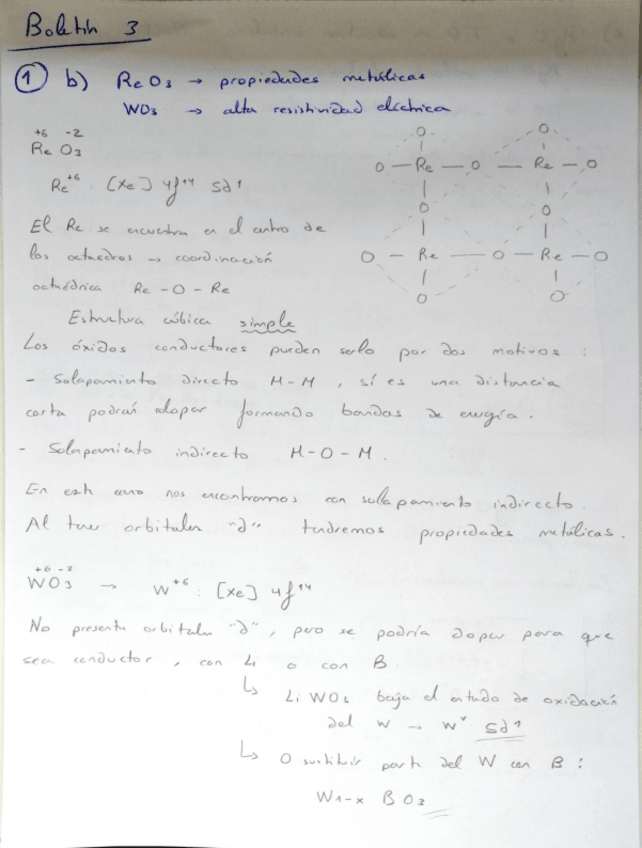 Boletín 3
① b) ReO3 → propiedades metálicas
WO3 → alta resistividad eléctrica
+6 -2
Re O3
Re+6 : [Xe] 4f14 5d1
El Re se encuentra en el centro de
los octaedros → coordinación
octaédrica Re - O - Re
Estructura cúbica simple
O O
O — Re — O — Re — O
O O
O — Re — O — Re — O
O O
Los óxidos conductores pueden serlo por dos motivos :
- Solapamiento directo M-M , sí es una distancia
corta podrán solapar formando bandas de energía.
- Solapamiento indirecto M-O-M.
En este caso nos encontramos con solapamiento indirecto.
Al tener orbitales "d" tendremos propiedades metálicas.
+6 -2
WO3 → W+6 : [Xe] 4f14
No presenta orbitales "d", pero se podría dopar para que
sea conductor, con Li o con B
↳ LiWO3 baja el estado de oxidación
del W → WV 5d1
↳ O sustituir parte del W con B :
W1-x BO3